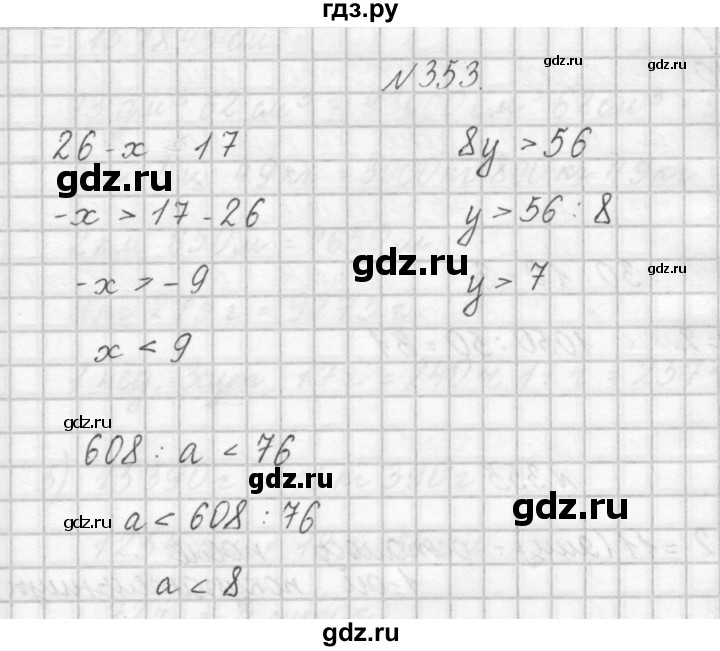 гдз.ру
№353.
26-x < 17
-x > 17-26
-x > -9
x < 9
8y > 56
y > 56 : 8
y > 7
608 : a < 76
a < 608 : 76
a < 8
gdz.ru
gdz.ru
gdz.ru
gdz.ru
gdz.ru
gdz.ru
gdz.ru
gdz.ru
gdz.ru
gdz.ru
gdz.ru